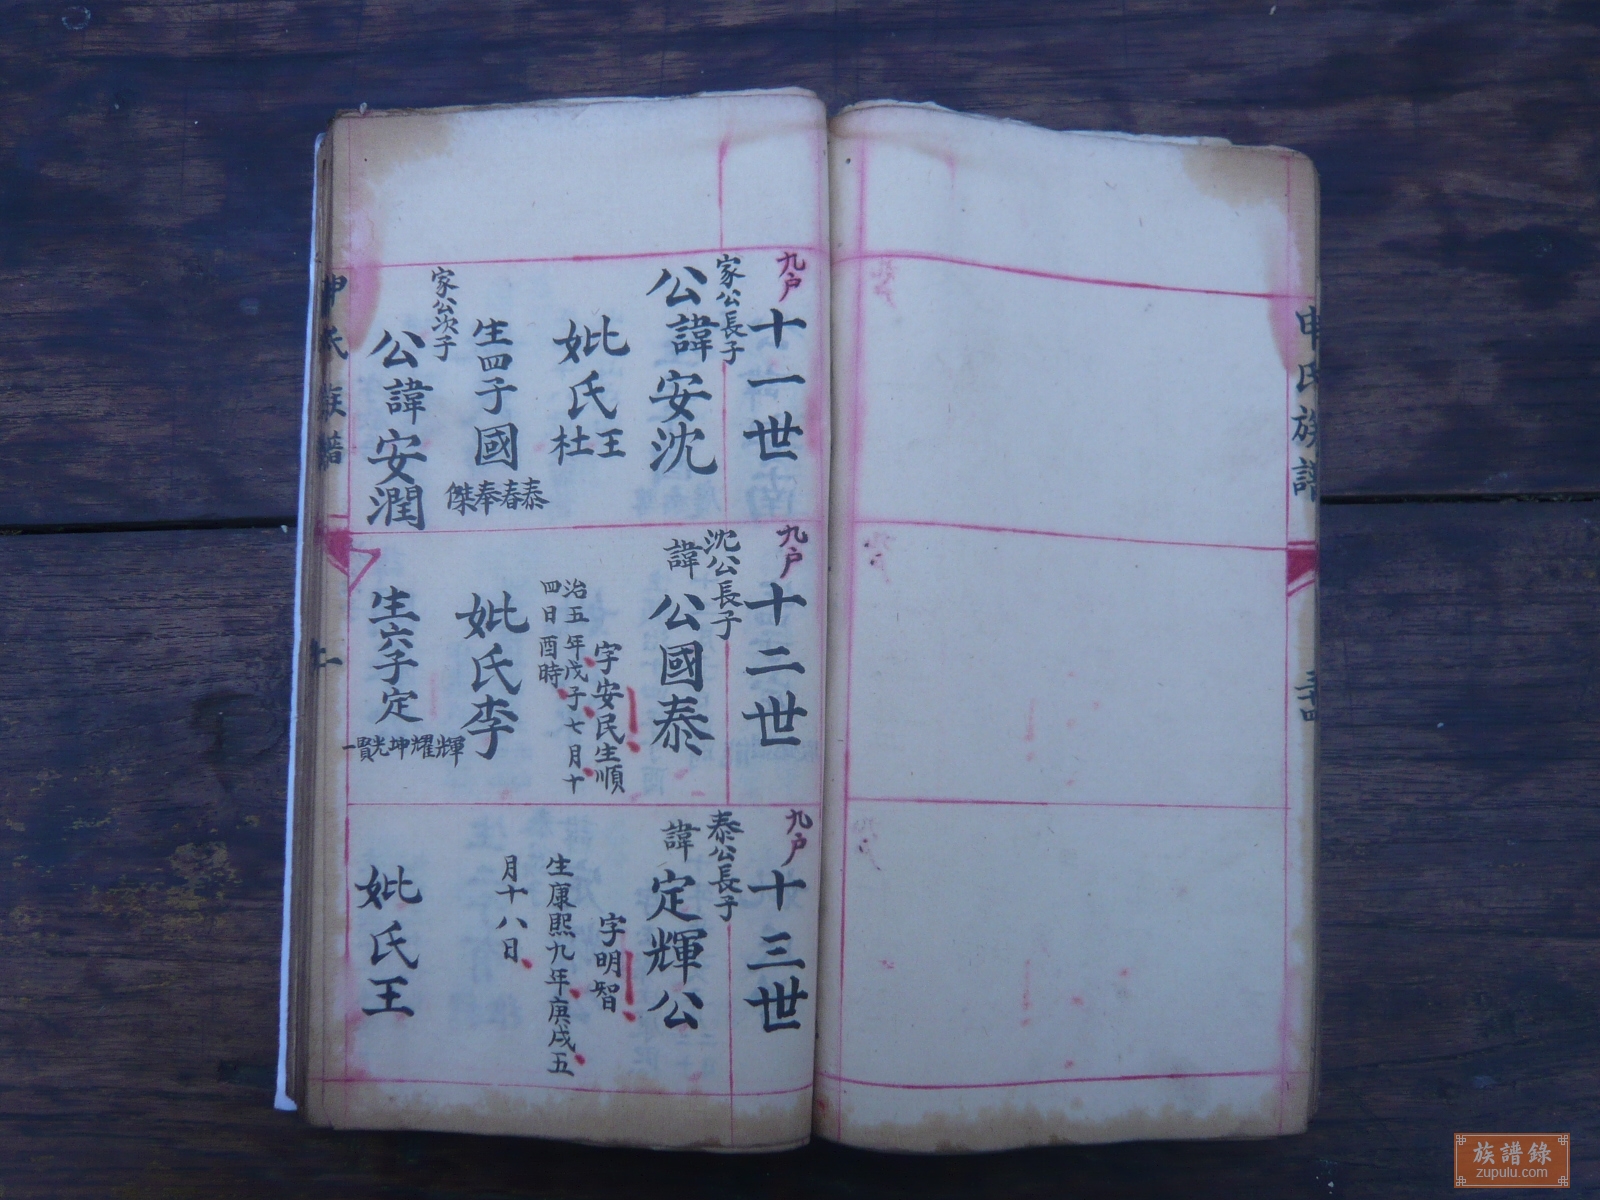 申氏族譜
九户
十一世
家公長子
公諱安沈
妣氏王
杜
生四子國
泰春奉傑
家公次子
公諱安潤
九户
十二世
沈公長子
諱公國泰
字安民生順
治五年戊子七月十
四日酉時
妣氏李
生六子定
輝耀坤光貫一
九户
十三世
泰公長子
諱定輝公
字明智
生康熙九年庚戌五
月十八日
妣氏王
申氏族譜
族譜錄
zupulu.com